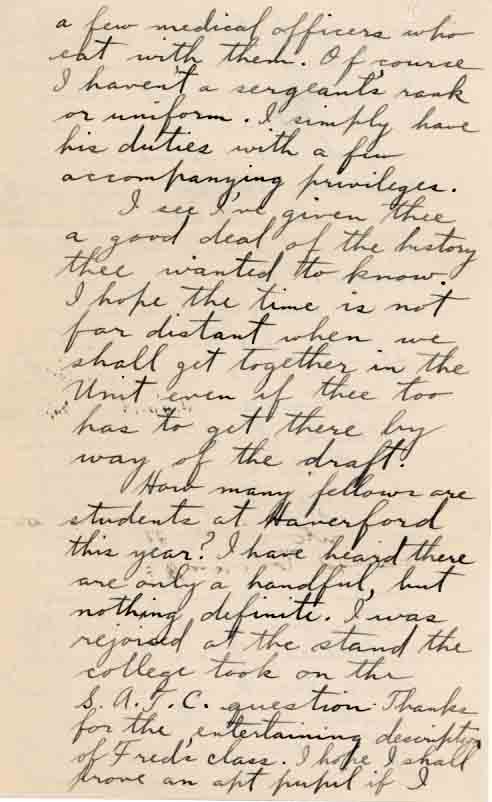 a few medical officers who
eat with them. Of course
I haven't a sergeant's rank
or uniform. I simply have
his duties with a few
accompanying privileges.
I see I've given thee
a good deal of the history
thee wanted to know.
I hope the time is not
far distant when we
shall get together in the
Unit even if thee too
has to get there by
way of the draft.
How many fellows are
students at Haverford
this year? I have heard there
are only a handful, but
nothing definite. I was
rejoiced at the stand the
college took on the
S. A. T. C. question. Thanks
for the entertaining description
of Fred's class. I hope I shall
prove an apt pupil if I